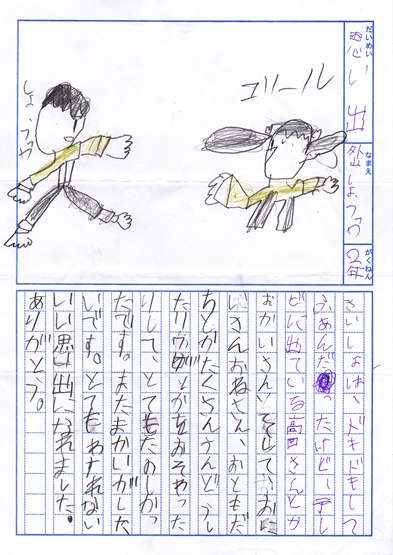 だいめい
思い出
なまえ
しょうワ
がくねん
2年
エリール
しょうワ
さいしょは、ドキドキして
ふあんだったけど、テレ
ビに出ている高田さんとか
おかいさん、そして、おに
いさんおねさん、おともだ
ちとかたくさんさんとどうし
たりウガとかをおそわった
りして、とてもたのしかっ
たです。またまかいがした
いです。とてもわすれない
いい思い出になれました。
ありがとう。